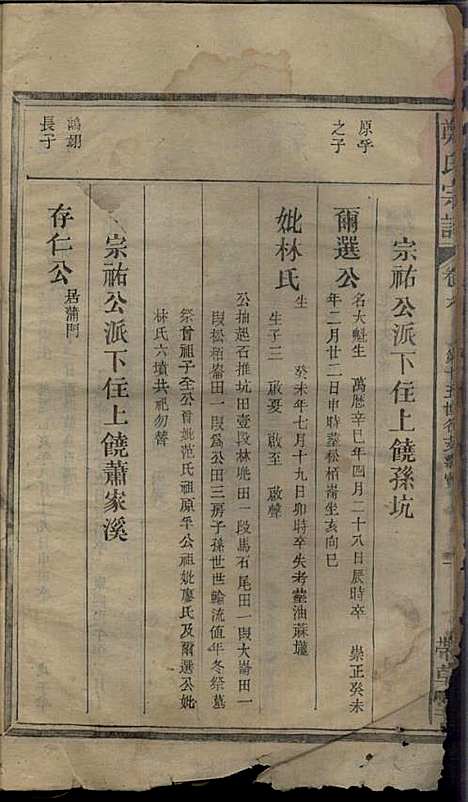 鄭氏宗譜
卷六
宗祐公派下住上饒孫坑
原孚
之子
爾選公
名大魁生 萬曆辛巳年四月二十八日辰時卒 崇正癸未
年二月廿二日申時塟松栢崙坐亥向巳
妣林氏
生 癸未年七月十九日卯時卒失考塟油蔴壠
生子三 啟憂 啟至 啟聲
公抽起石推坑田壹段林墘田一段馬石尾田一段大崙田一
段松栢崙田一段爲公田三房子孫世世輪流值年冬祭墓
祭曾祖子全公曾妣范氏祖原平公祖妣廖氏及爾選公妣
林氏六墳共祀勿替
宗祐公派下住上饒蕭家溪
鴻翊
長子
存仁公
居蒲門